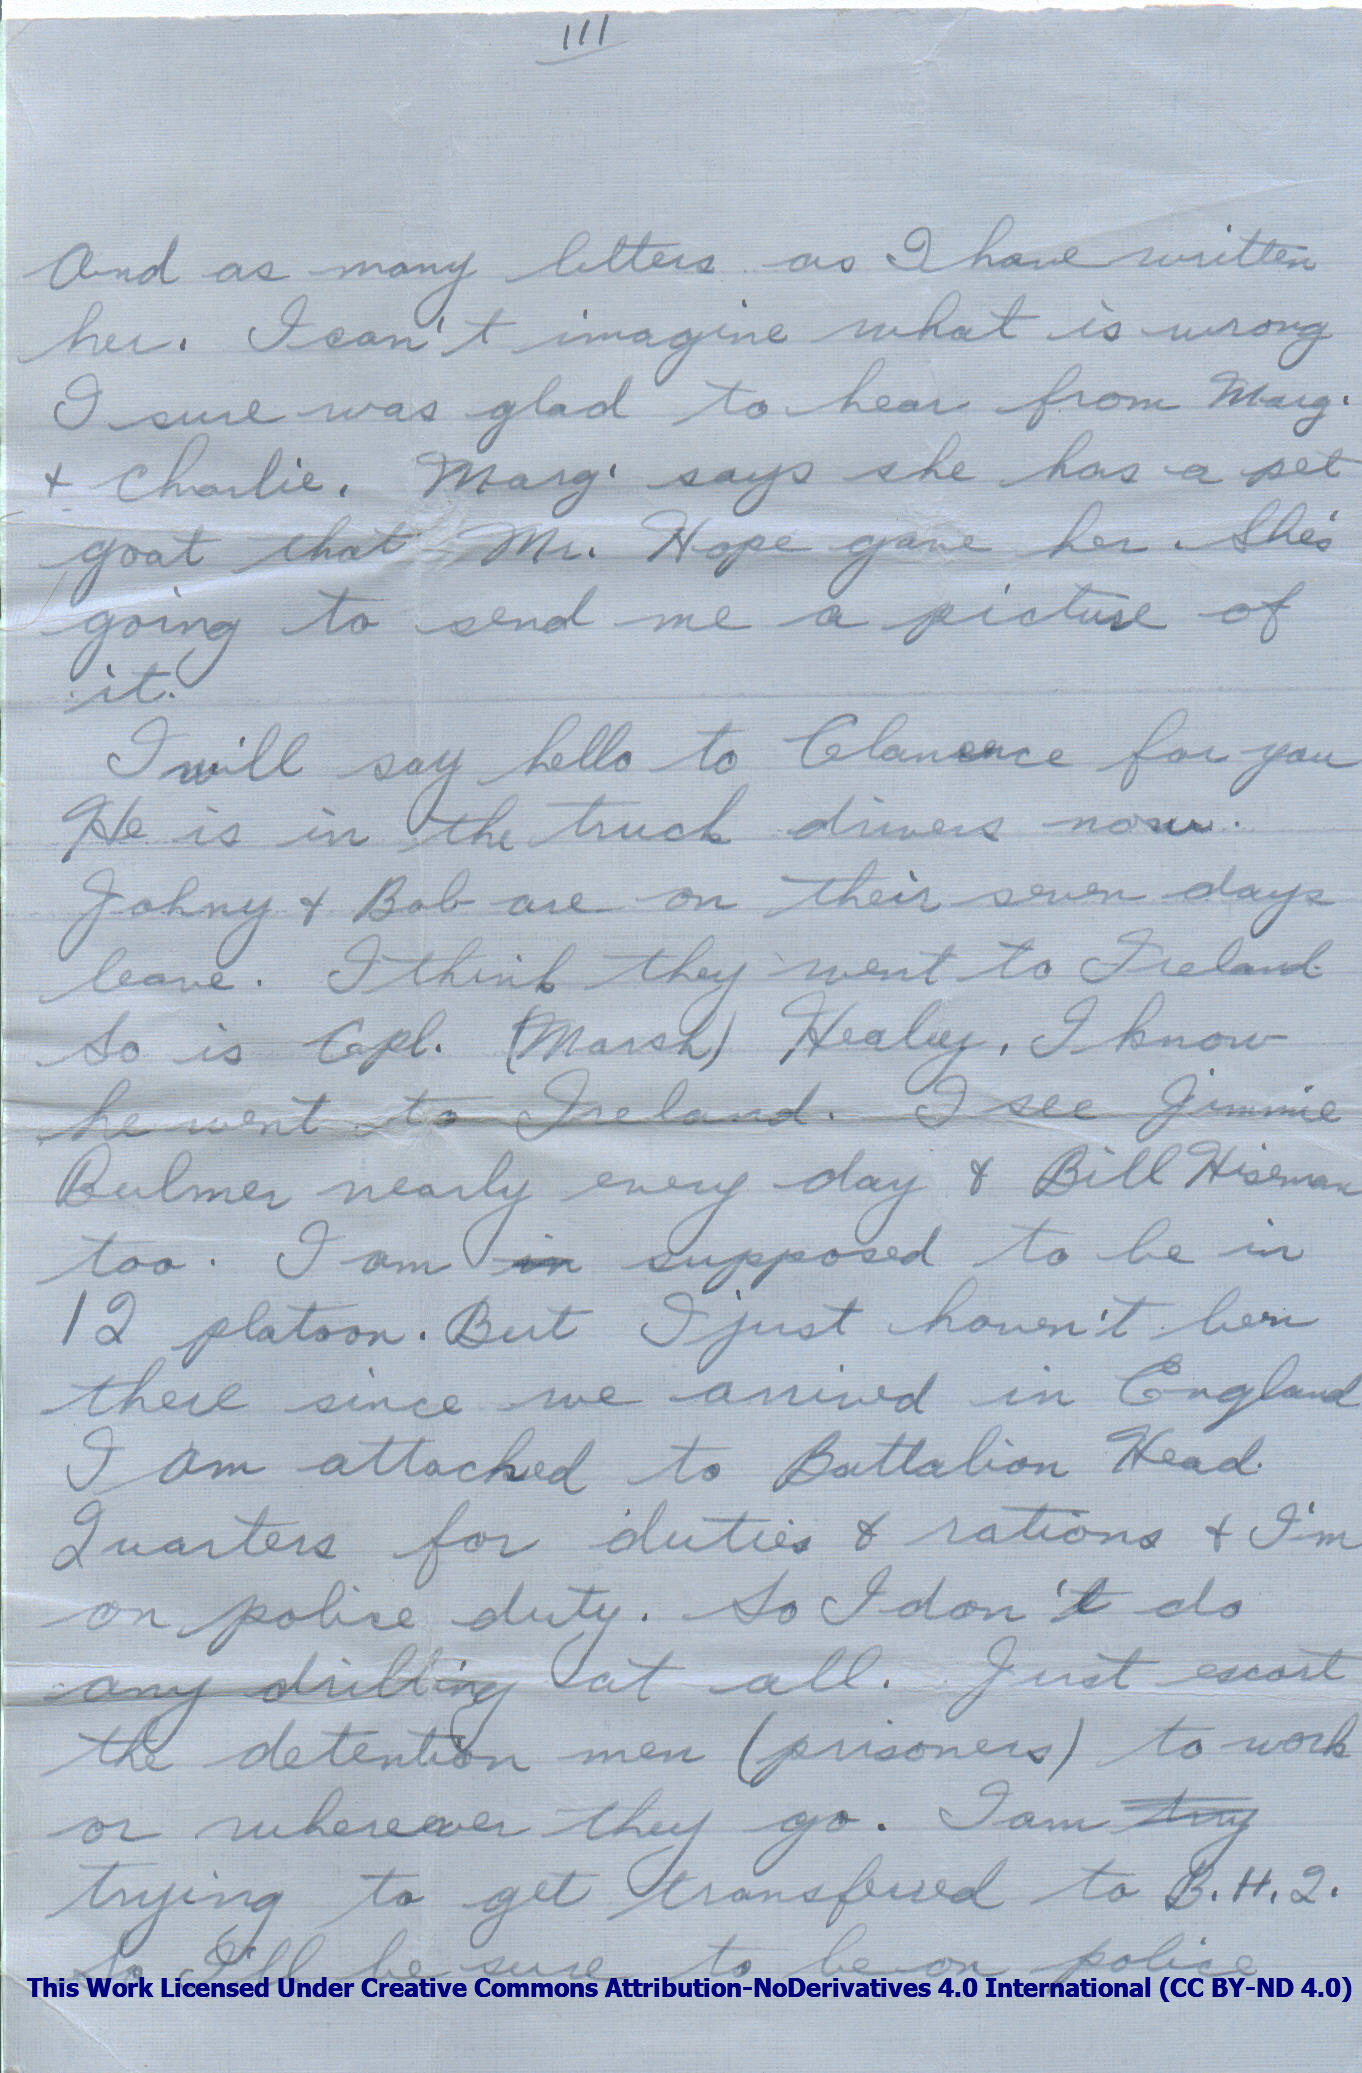 111
And as many letters as I have written
her. I can't imagine what is wrong
I sure was glad to hear from Marg.
& Charlie. Marg. says she has a pet
goat that Mr. Hope gave her. She's
going to send me a picture of
it.
I will say hello to Clarence for you
He is in the truck drivers now.
Johny & Bob are on their seven days
leave. I think they went to Ireland.
So is Cpl. (Marsh) Healey, I know
he went to Ireland. I see Jimmie
Bulmer nearly every day & Bill Hiseman
too. I am in supposed to be in
12 platoon. But I just haven't ben
there since we arrived in England
I am attached to Battalion Head.
Quarters for duties & rations & I'm
on police duty. So I don't do
any drilling at all. Just escort
the detention men (prisoners) to work
or whereever they go. I am try
trying to get transfered to B.H.Q.
So I'll be sure to be on police
This Work Licensed Under Creative Commons Attribution-NoDerivatives 4.0 International (CC BY-ND 4.0)